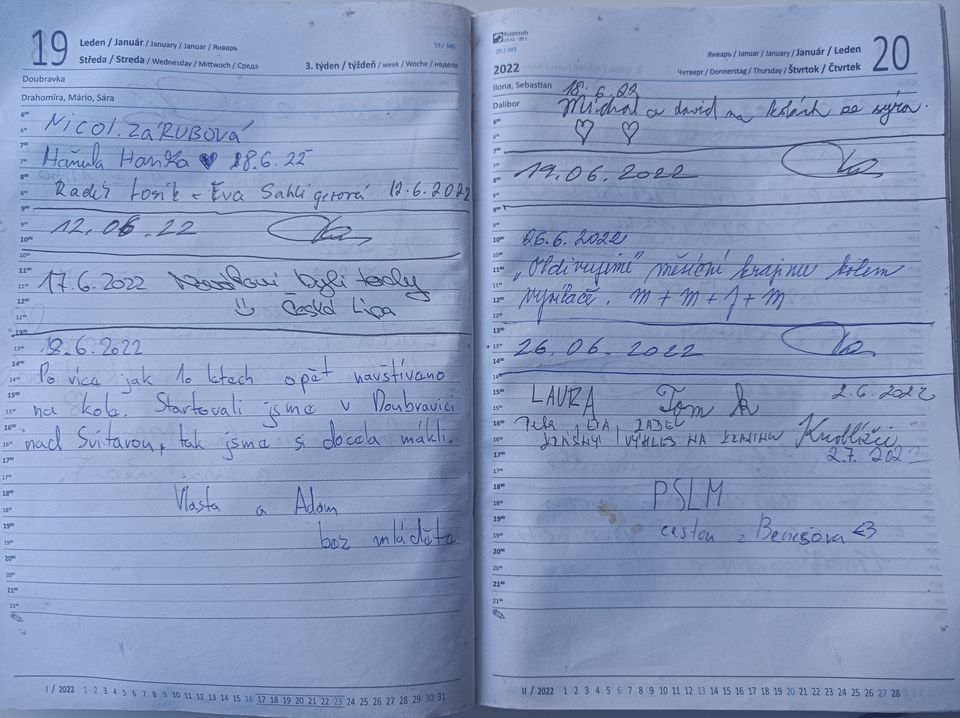 19
Leden / Január / January / Januar / Январь
19 / 346
Středa / Streda / Wednesday / Mittwoch / Среда
3. týden / týždeň / week / Woche / неделя
Doubravka
Drahomíra, Mário, Sára
NICOL ZÁRUBOVÁ
Hanka ♥ 18.6.22
Radek Losík + Eva 12.6.2022
12.06.22
17.6.2022 byli tady
☺ Česká Lípa
18.6.2022
Po více jak 10 letech opět navštíveno
na kole. Startovali jsme v Doubravici
nad Svitavou, tak jsme si docela mákli.
Vlasta a Adam
bez mláděte
I / 2022 1 2 3 4 5 6 7 8 9 10 11 12 13 14 15 16 17 18 19 20 21 22 23 24 25 26 27 28 29 30 31
Kozoroh
20 / 345
2022
Январь / Januar / January / Január / Leden
Четверг / Donnerstag / Thursday / Štvrtok / Čtvrtek
20
Ilona, Sebastian
Dalibor
18.6.22
Michal a david na kolách ze sýra.
♡ ♡
19.06.2022
26.6.2022
"Obdivujeme" měsíční krajinu kolem
vysílače. M + M + J + M
26.06.2022
LAURA Tom 2.6.2022
KRÁSNÝ VÝHLED NA KRAJINU
2.7.2022
PSLM
cestou z Benešova <3
II / 2022 1 2 3 4 5 6 7 8 9 10 11 12 13 14 15 16 17 18 19 20 21 22 23 24 25 26 27 28